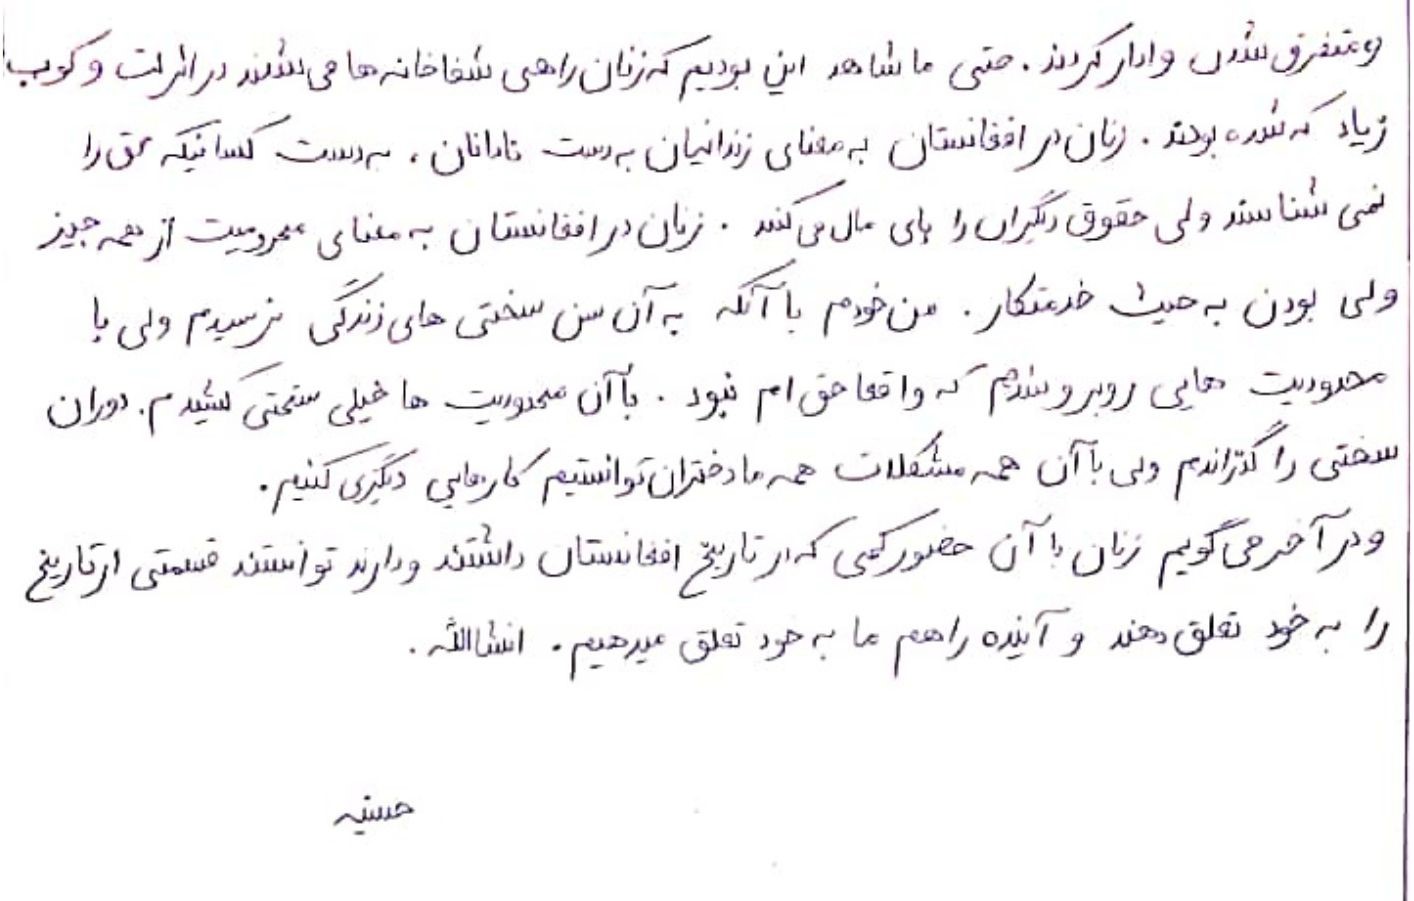 و متفرق شدن وادار کردند. حتی ما شاهد این بودیم که زنان راهی شفاخانه ها می شدند در اثر لت و کوب
زیاد که شده بودند. زنان در افغانستان به معنای زندانیان به دست نادانان، به دست کسانیکه حق را
نمی شناسند ولی حقوق دیگران را پای مال می کنند. زنان در افغانستان به معنای محرومیت از همه چیز
ولی بودن به حیث خدمتکار. من خودم با آنکه به آن سن سختی های زندگی نرسیدم ولی با
محدودیت هایی روبرو شدم که واقعا حق ام نبود. با آن محدودیت ها خیلی سختی کشیدم. دوران
سختی را گذراندم ولی با آن همه مشکلات همه ما دختران توانستیم کارهایی دیگری کنیم.
و در آخر می گویم زنان با آن حضور کمی که در تاریخ افغانستان داشتند و دارند توانستند قسمتی از تاریخ
را به خود تعلق دهند و آینده را هم ما به خود تعلق میدهیم. انشاالله.
حسنیه